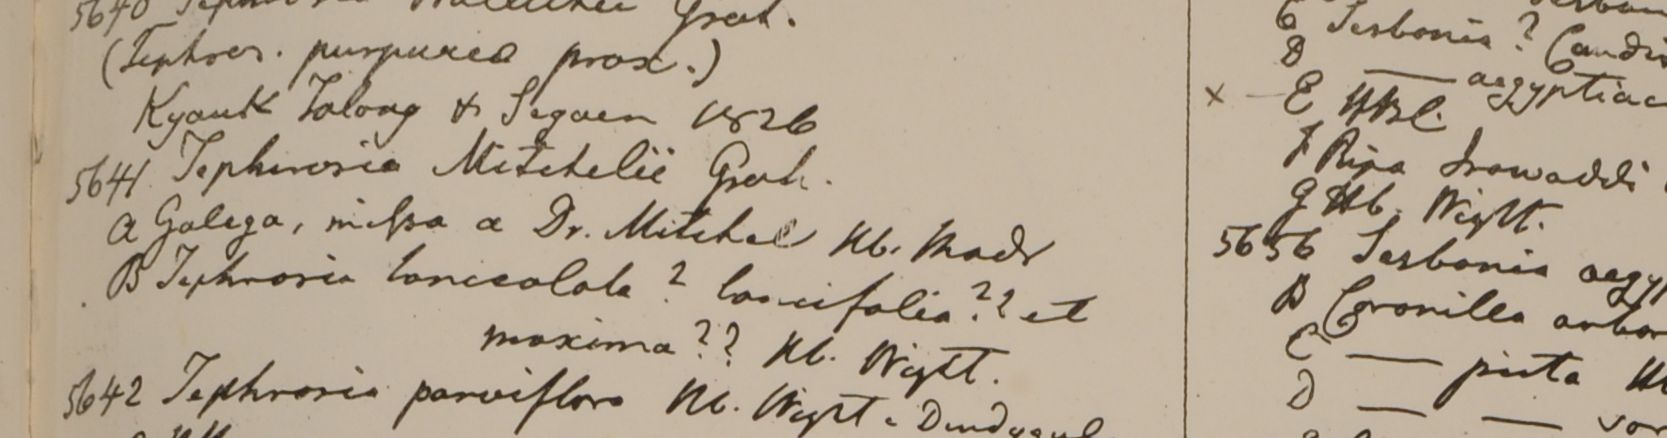 5640 Tephrosia Wallichii Grah.
(Tephros. purpurea prox.)
Kyauk Talong & Segaen 1826
5641 Tephrosia Mitchelii Grah.
A Galega, missa a Dr. Mitchel Hb. Madr
B Tephrosia lanceolata? lancifolia?? et
maxima?? Hb. Wight.
5642 Tephrosia parviflora Hb. Wight
C Sesbania? Candi
D — aegyptiac
× — E HBC.
F Ripa Irawaddi
G Hb. Wight.
5656 Sesbania aegy
B Coronilla arbor
C — picta
D — —